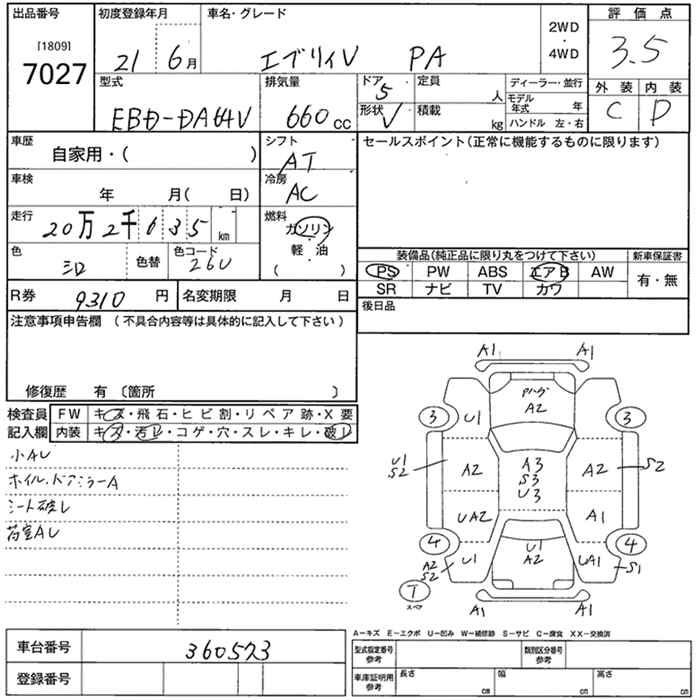 出品番号
[1809]
7027
初度登録年月
21 6月
車名・グレード
エブリイV PA
2WD
・
4WD
評価点
3.5
外装 内装
C D
型式
EBD-DA64V
排気量
660 cc
ドア
5
形状 V
定員
人
積載
kg
ディーラー・並行
モデル年式 年
ハンドル 左・右
車歴
自家用・( )
シフト
AT
車検
年 月( 日)
冷房
AC
走行
20万2千635 km
燃料
ガソリン
軽・油
( )
色
シロ
色替
色コード
26U
セールスポイント(正常に機能するものに限ります)
装備品(純正品に限り丸をつけて下さい)
新車保証書
PS PW ABS エアB AW
有・無
SR ナビ TV カワ
R券 9310 円
名変期限 月 日
後日品
注意事項申告欄 (不具合内容等は具体的に記入して下さい)
修復歴 有 〔箇所 〕
検査員
記入欄
FW キズ・飛石・ヒビ割・リペア跡・X要
内装 キズ・汚レ・コゲ・穴・スレ・キレ・破レ
小AU
ホイル,ドアミラーA
シート破レ
荷室AU
A1 A1
A2
3 U1 3
U1
S2
A2
A3
S3
U3
A2 S2
UA2 A1
4 4
A2
S2
U1
U1
A2
UA1 S1
T
スペア
A1 A1
A-キズ E-エクボ U-凹み W-補修跡 S-サビ C-腐食 XX-交換済
車台番号 360573
登録番号
型式指定番号
参考
類別区分番号
参考
車庫証明用
参考
長さ cm
幅 cm
高さ cm